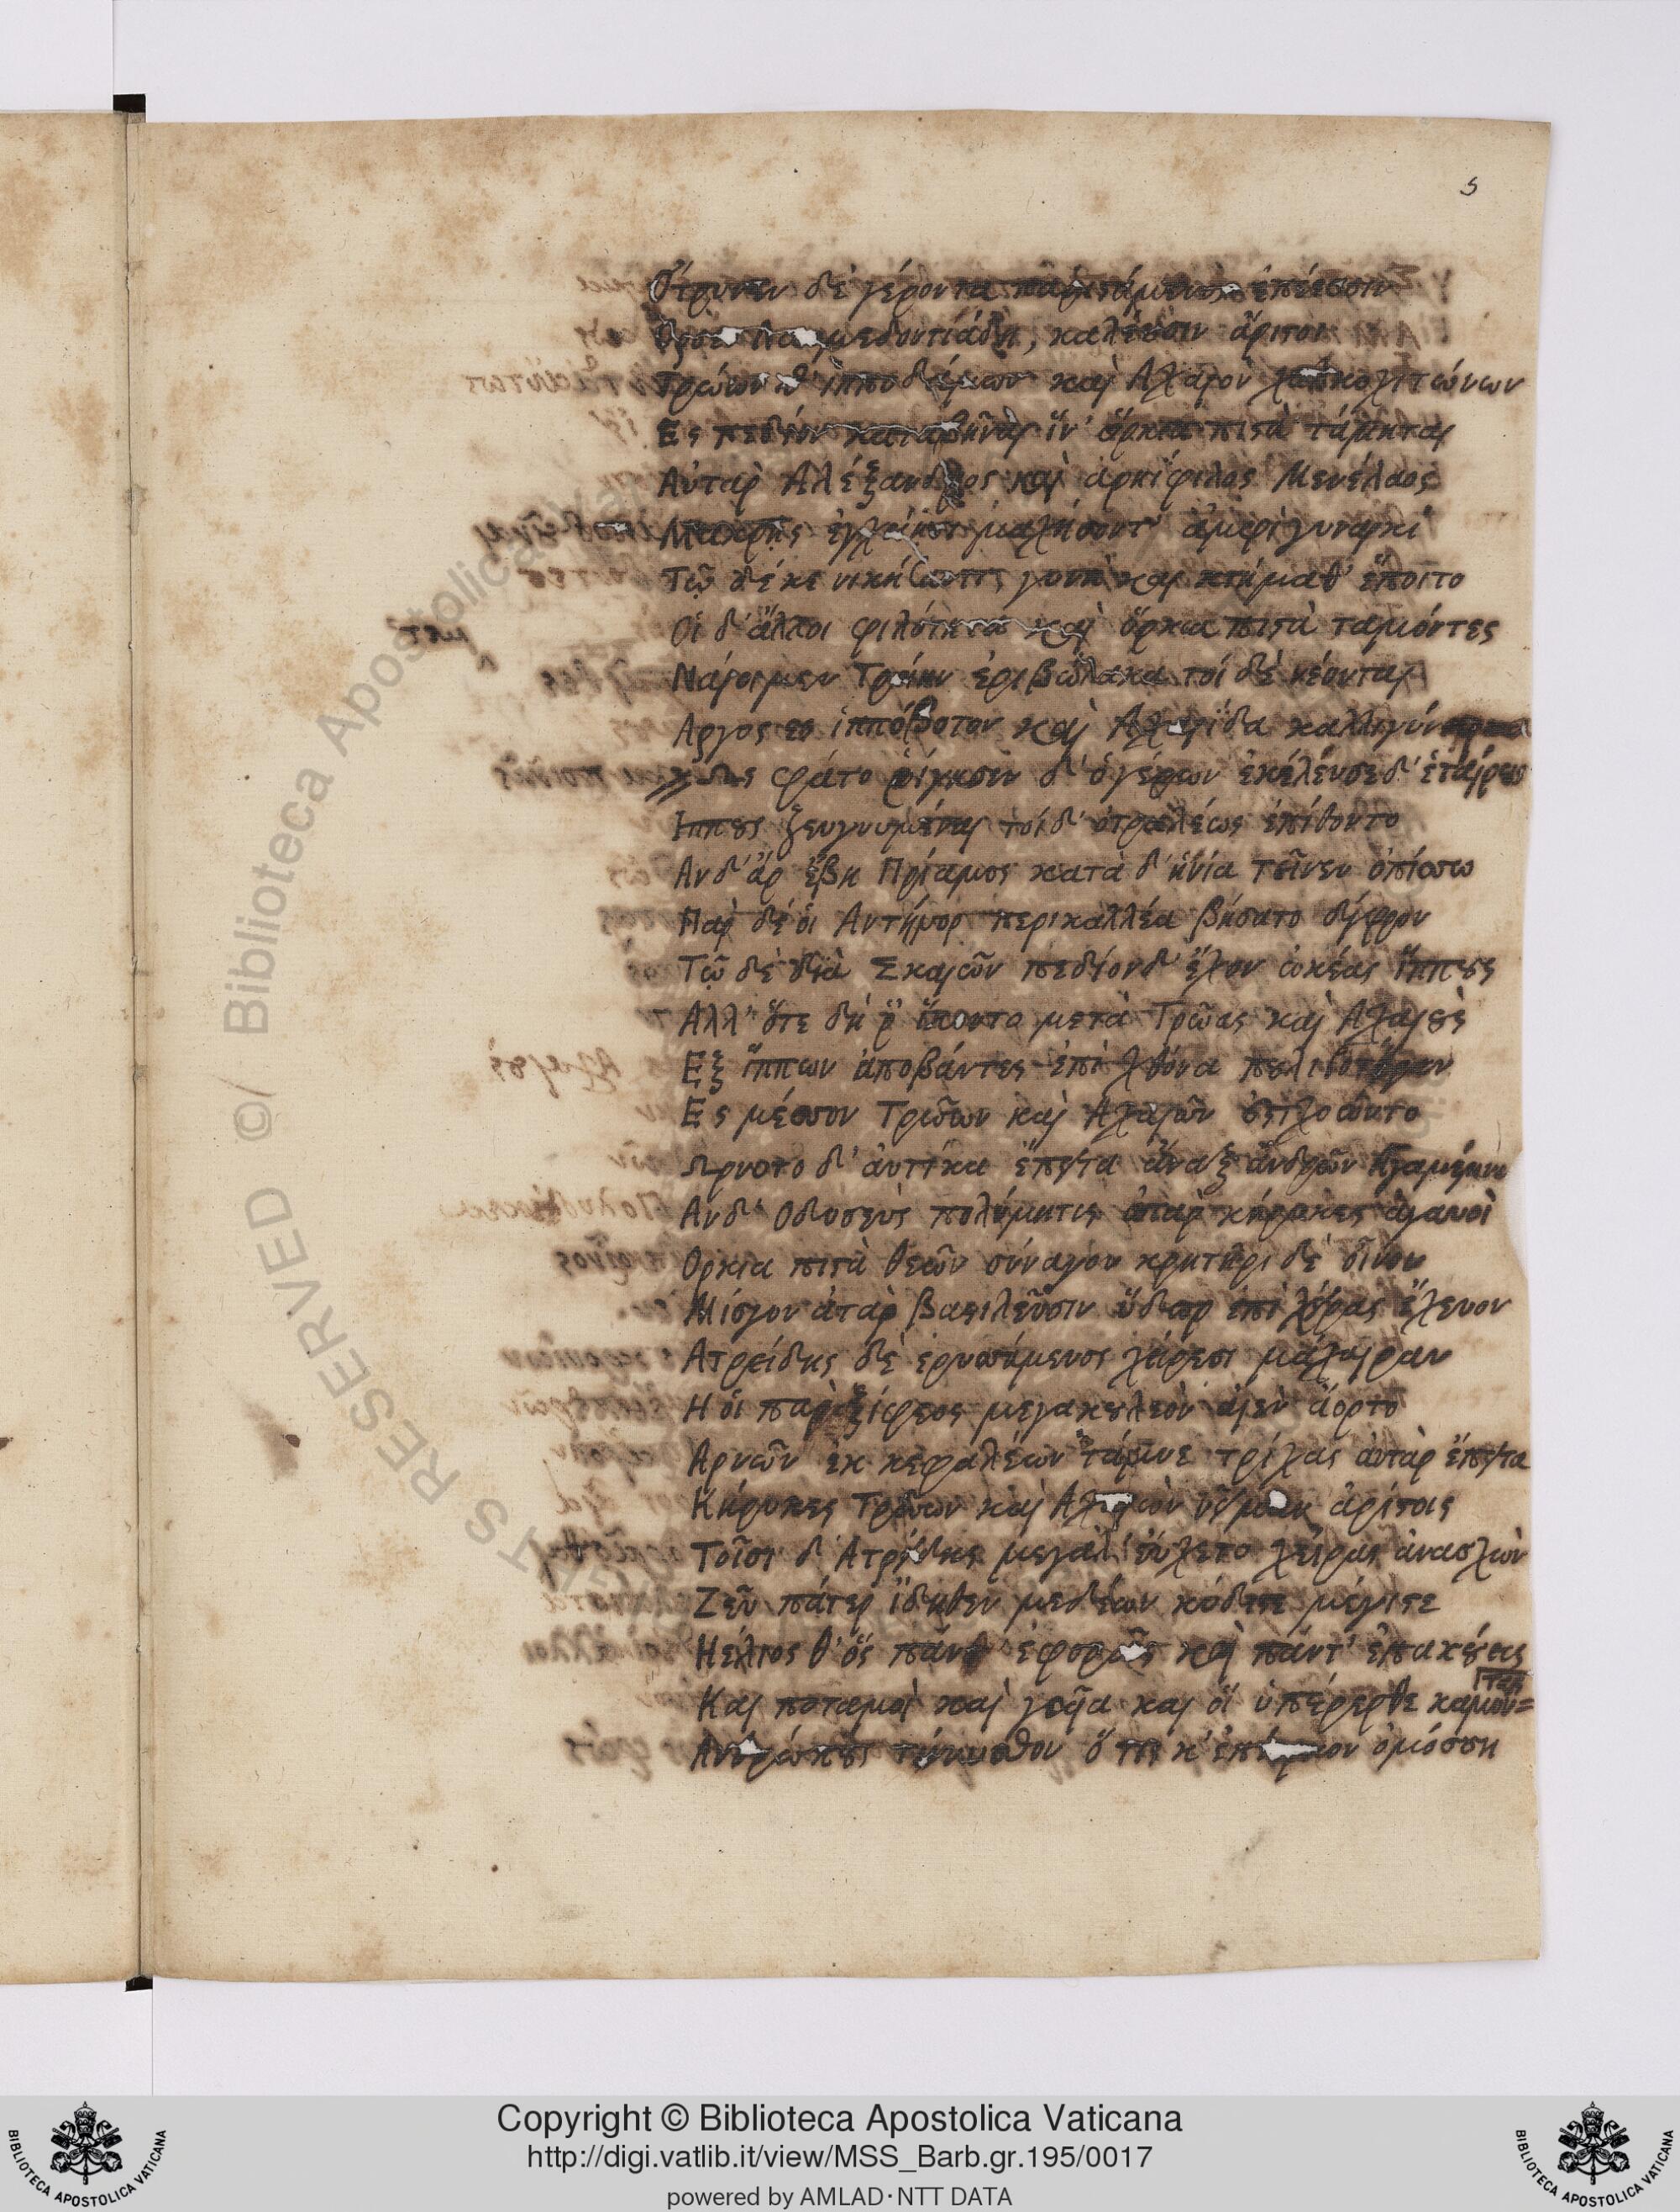 5
Ὤτρυνεν δὲ γέροντα παριστάμενος ἐπέεσσιν
Ὄρσεο Λαομεδοντιάδη, καλέουσιν ἄριστοι
Τρώων θ' ἱπποδάμων καὶ Αχαιῶν χαλκοχιτώνων
Ες πεδίον καταβῆναι ἵν' ὅρκια πιστὰ τάμηται
Αὐτὰρ Αλέξανδρος καὶ ἀρηίφιλος Μενέλαος
Μακρῇς ἐγχείῃσι μαχήσοντ' ἀμφὶ γυναικὶ
Τῷ δέ κε νικήσαντι γυνὴ καὶ κτήμαθ' ἕποιτο
Οἱ δ' ἄλλοι φιλότητα καὶ ὅρκια πιστὰ ταμόντες
Ναίοιμεν Τροίην ἐριβώλακα τοὶ δὲ νέονται
Αργος ἐς ἱππόβοτον καὶ Αχαιΐδα καλλιγύναικα
Ως φάτο ῥίγησεν δ' ὁ γέρων ἐκέλευσε δ' ἑταίρους
Ιππους ζευγνυμέναι τοὶ δ' ὀτραλέως ἐπίθοντο
Αν δ' ἄρ ἔβη Πρίαμος κατὰ δ' ἡνία τεῖνεν ὀπίσσω
Παρ δέ οἱ Αντήνωρ περικαλλέα βήσατο δίφρον
Τῷ δὲ διὰ Σκαιῶν πεδίονδ' ἔχον ὠκέας ἵππους
Αλλ' ὅτε δή ῥ' ἵκοντο μετὰ Τρῶας καὶ Αχαιοὺς
Εξ ἵππων ἀποβάντες ἐπὶ χθόνα πουλυβότειραν
Ες μέσσον Τρώων καὶ Αχαιῶν ἐστιχόωντο
Ωρνυτο δ' αὐτίκα ἔπειτα ἄναξ ἀνδρῶν Αγαμέμνων
Αν δ' Οδυσεὺς πολύμητις ἀτὰρ κήρυκες ἀγαυοὶ
Ορκια πιστὰ θεῶν σύναγον κρητῆρι δὲ οἶνον
Μίσγον ἀτὰρ βασιλεῦσιν ὕδωρ ἐπὶ χεῖρας ἔχευον
Ατρείδης δὲ ἐρυσσάμενος χείρεσι μάχαιραν
Η οἱ παρ ξίφεος μέγα κουλεὸν αἰὲν ἄορτο
Αρνῶν ἐκ κεφαλέων τάμνε τρίχας αὐτὰρ ἔπειτα
Κήρυκες Τρώων καὶ Αχαιῶν νεῖμαν ἀρίστοις
Τοῖσι δ' Ατρείδης μεγάλ' εὔχετο χεῖρας ἀνασχὼν
Ζεῦ πάτερ ἴδηθεν μεδέων κύδιστε μέγιστε
Ηέλιος θ' ὃς πάντ' ἐφορᾷς καὶ πάντ' ἐπακούεις
Και ποταμοὶ καὶ γαῖα καὶ οἳ ὑπένερθε καμόν=
τας
Ανθρώπους τίνυσθον ὅ τις κ' ἐπίορκον ὀμόσσῃ
Biblioteca Apostolica Vaticana
Copyright © Biblioteca Apostolica Vaticana
http://digi.vatlib.it/view/MSS_Barb.gr.195/0017
powered by AMLAD·NTT DATA
BIBLIOTECA APOSTOLICA VATICANA
BIBLIOTECA APOSTOLICA VATICANA